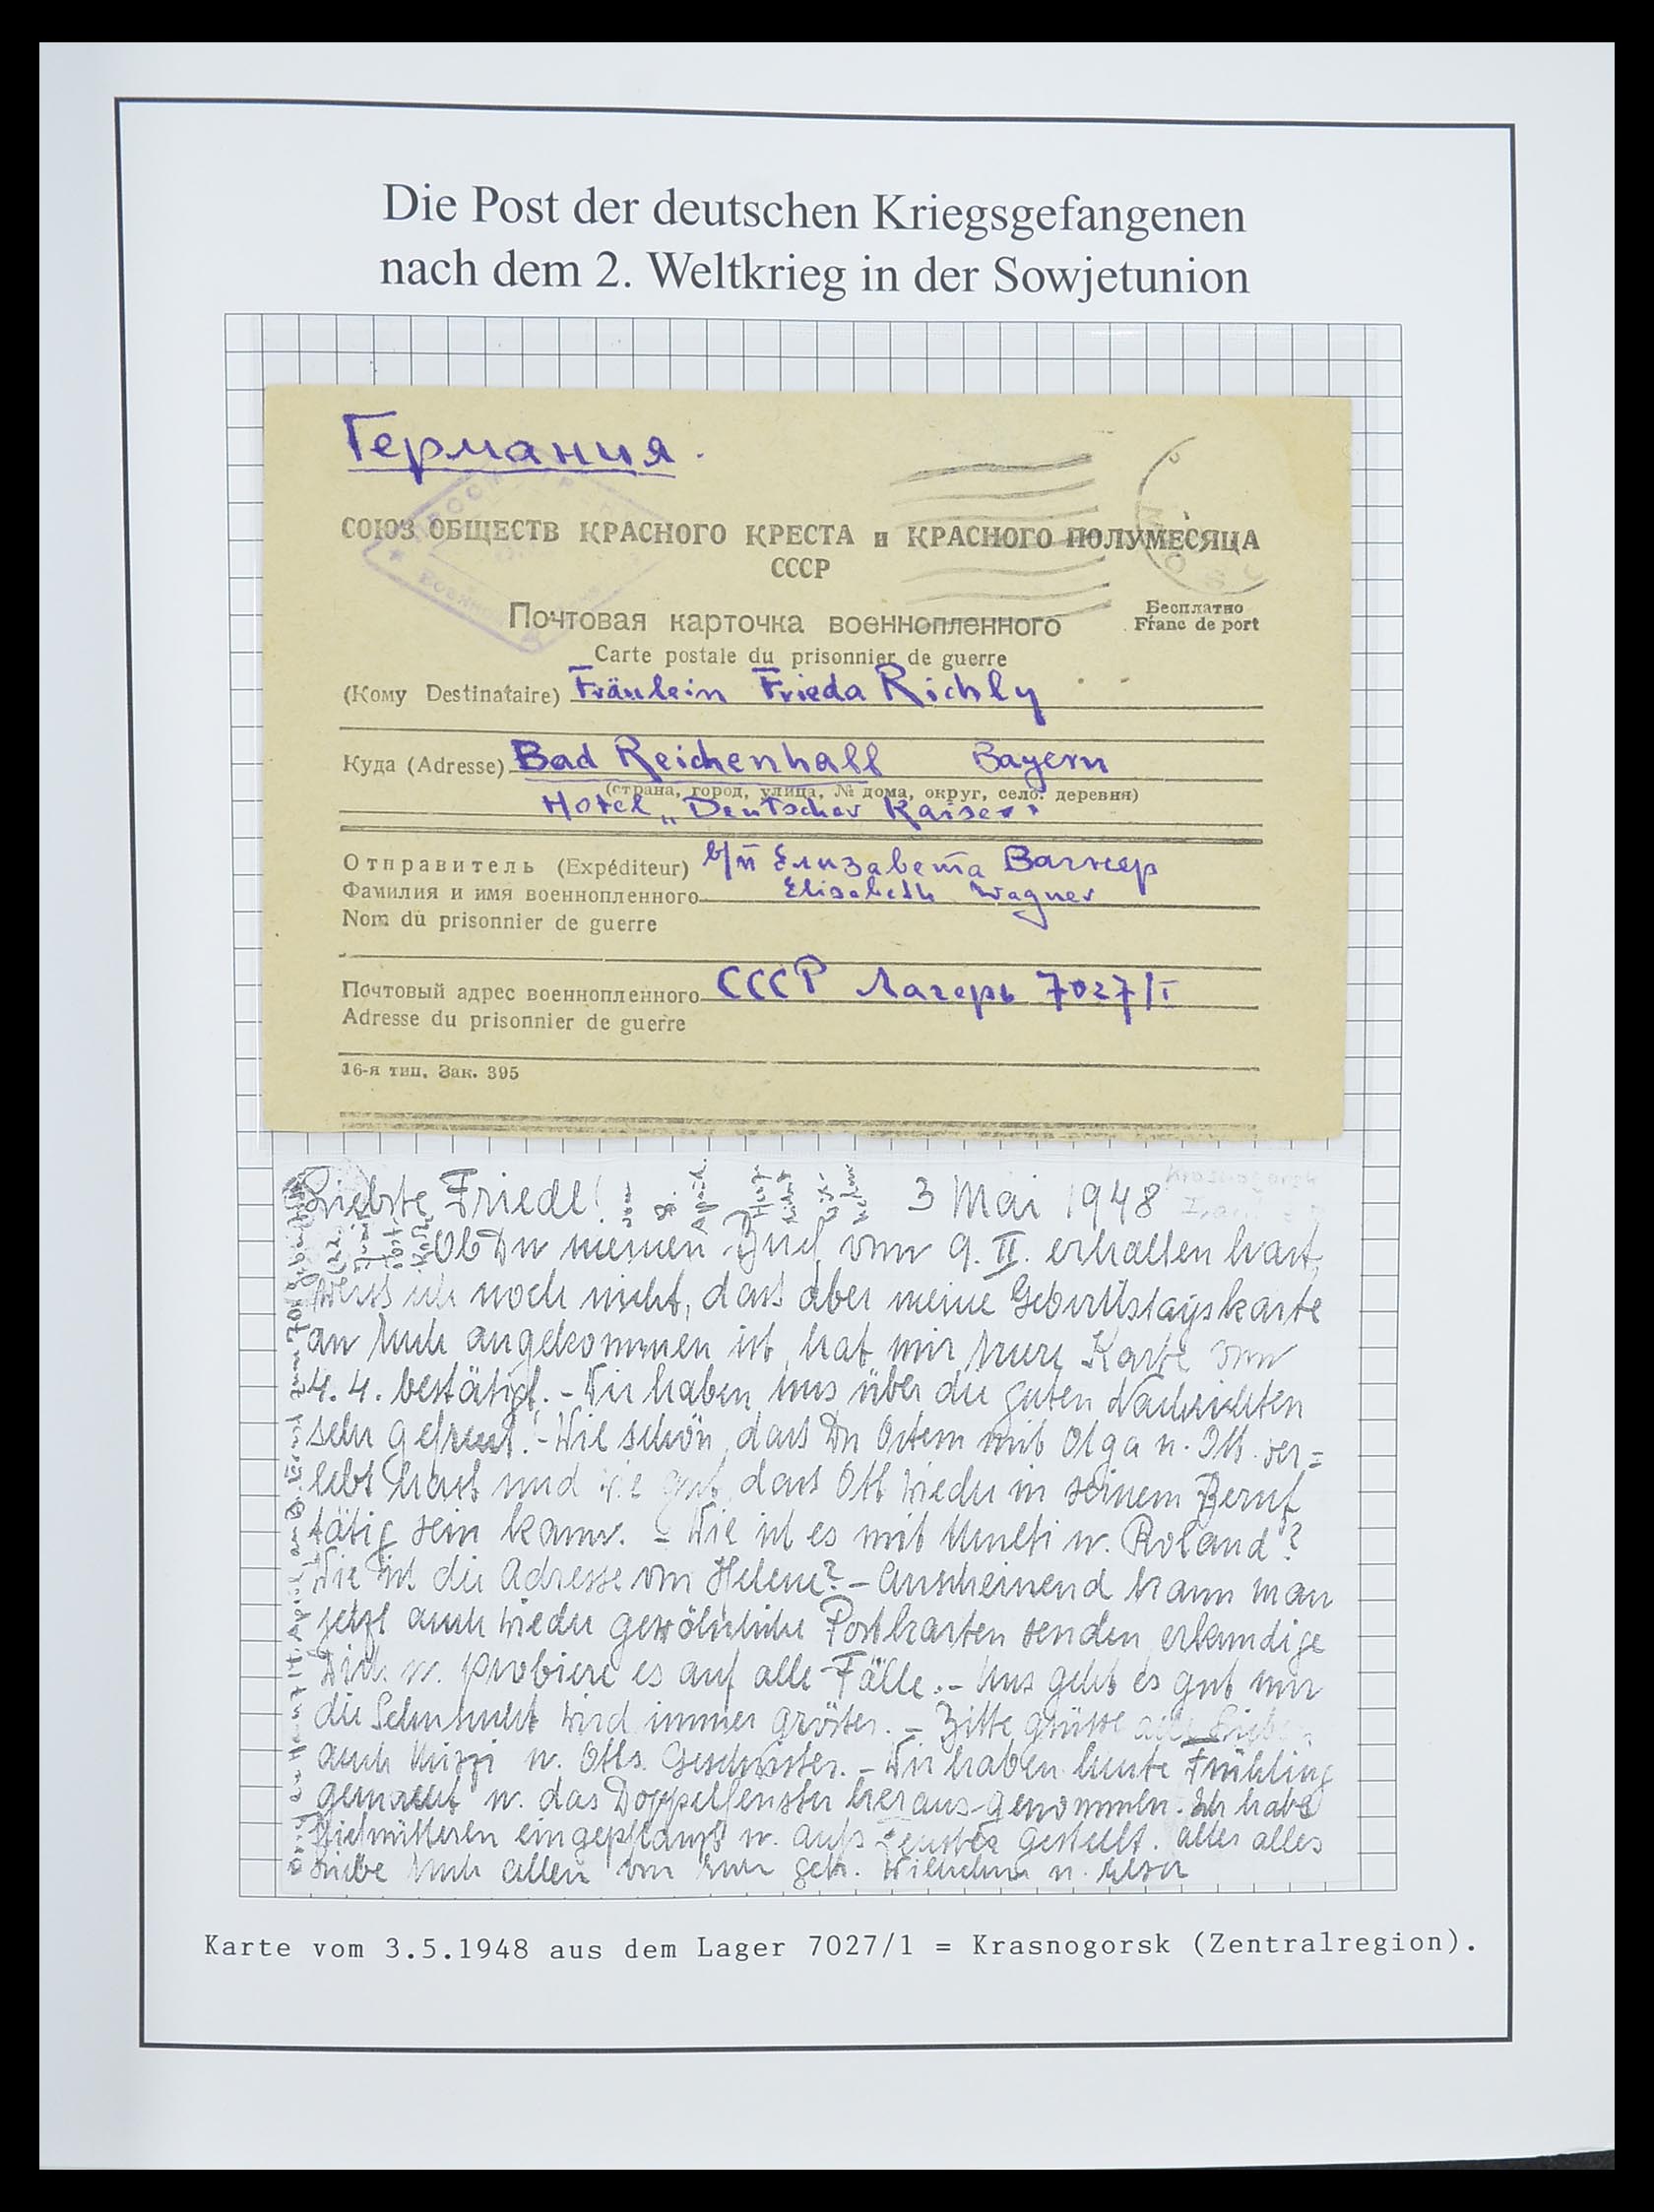 Die Post der deutschen Kriegsgefangenen
nach dem 2. Weltkrieg in der Sowjetunion
Германия.
СОЮЗ ОБЩЕСТВ КРАСНОГО КРЕСТА и КРАСНОГО ПОЛУМЕСЯЦА
СССР
Почтовая карточка военнопленного
Бесплатно
Franc de port
Carte postale du prisonnier de guerre
(Кому Destinataire) Fräulein Frieda Richly
Куда (Adresse) Bad Reichenhall Bayern
(страна, город, улица, № дома, округ, село, деревня)
Hotel „Deutscher Kaiser"
Отправитель (Expéditeur) в/п Елизабета Вагнер
Фамилия и имя военнопленного Elisabeth Wagner
Nom du prisonnier de guerre
Почтовый адрес военнопленного СССР Лагерь 7027/I
Adresse du prisonnier de guerre
16-я тип. Зак. 395
Liebste Friedl! 3 Mai 1948
Ob Du meinen Brief vom 9. II. erhalten hast,
weiss ich noch nicht, dass aber meine Geburtstagskarte
an Euch angekommen ist, hat mir Eure Karte vom
4. 4. bestätigt. - Wir haben uns über die guten Nachrichten
sehr gefreut. - Wie schön, dass Du Ostern mit Olga u. Ott. ver=
lebt hast und wie gut, dass Ott wieder in seinem Beruf
tätig sein kann. - Wie ist es mit u. Roland?
Wie ist die Adresse von Helene? - Anscheinend kann man
jetzt auch wieder gewöhnliche Postkarten senden, erkundige
Dich u. probiere es auf alle Fälle. - Uns geht es gut nur
die Sehnsucht wird immer grösser. - Bitte grüsse alle Lieben
auch u. Otts Geschwister. - Wir haben heute Frühling
gemacht u. das Doppelfenster heraus-genommen. Ich habe
Stiefmütteren eingepflanzt u. aufs Fenster gestellt. alles alles
Liebe Euch allen von Wilhelm u.
Karte vom 3.5.1948 aus dem Lager 7027/1 = Krasnogorsk (Zentralregion).